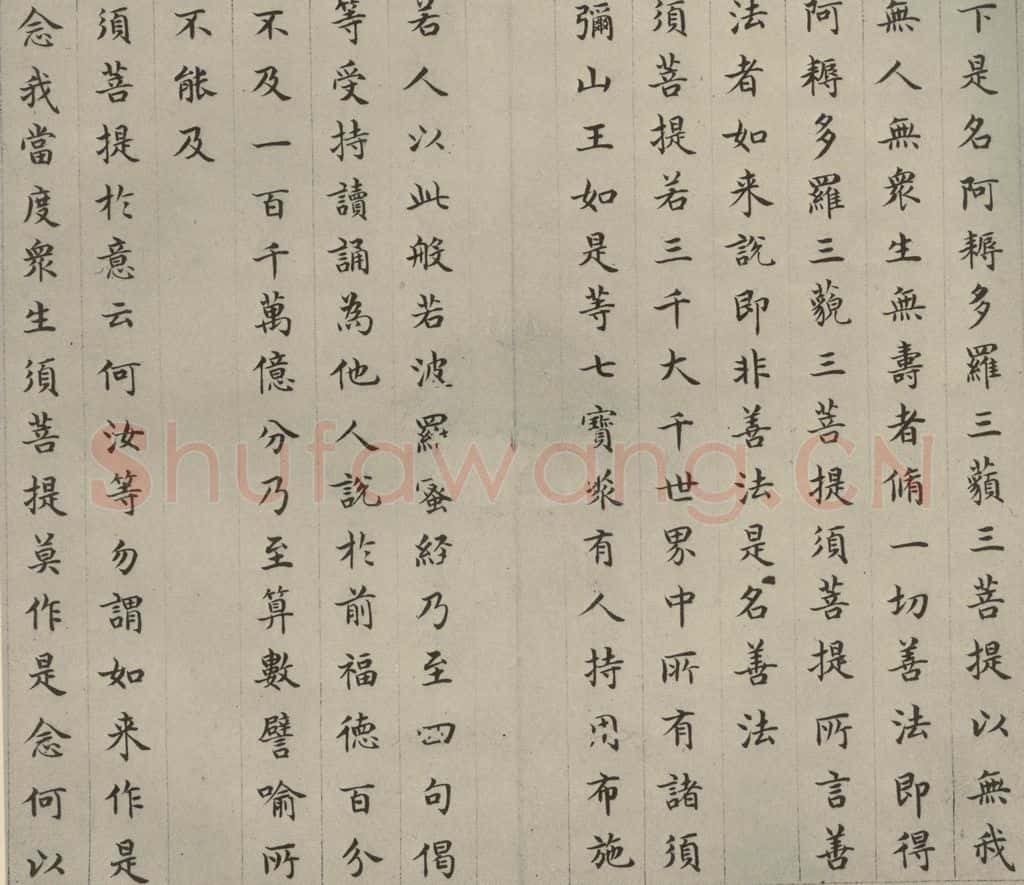 下是名阿耨多羅三藐三菩提以無我
無人無衆生無壽者脩一切善法即得
阿耨多羅三藐三菩提須菩提所言善
法者如来說即非善法是名善法
須菩提若三千大千世界中所有諸須
彌山王如是等七寶聚有人持用布施
若人以此般若波羅蜜経乃至四句偈
等受持讀誦為他人說於前福德百分
不及一百千萬億分乃至算數譬喻所
不能及
須菩提於意云何汝等勿謂如来作是
念我當度衆生須菩提莫作是念何以
Shufawang.CN